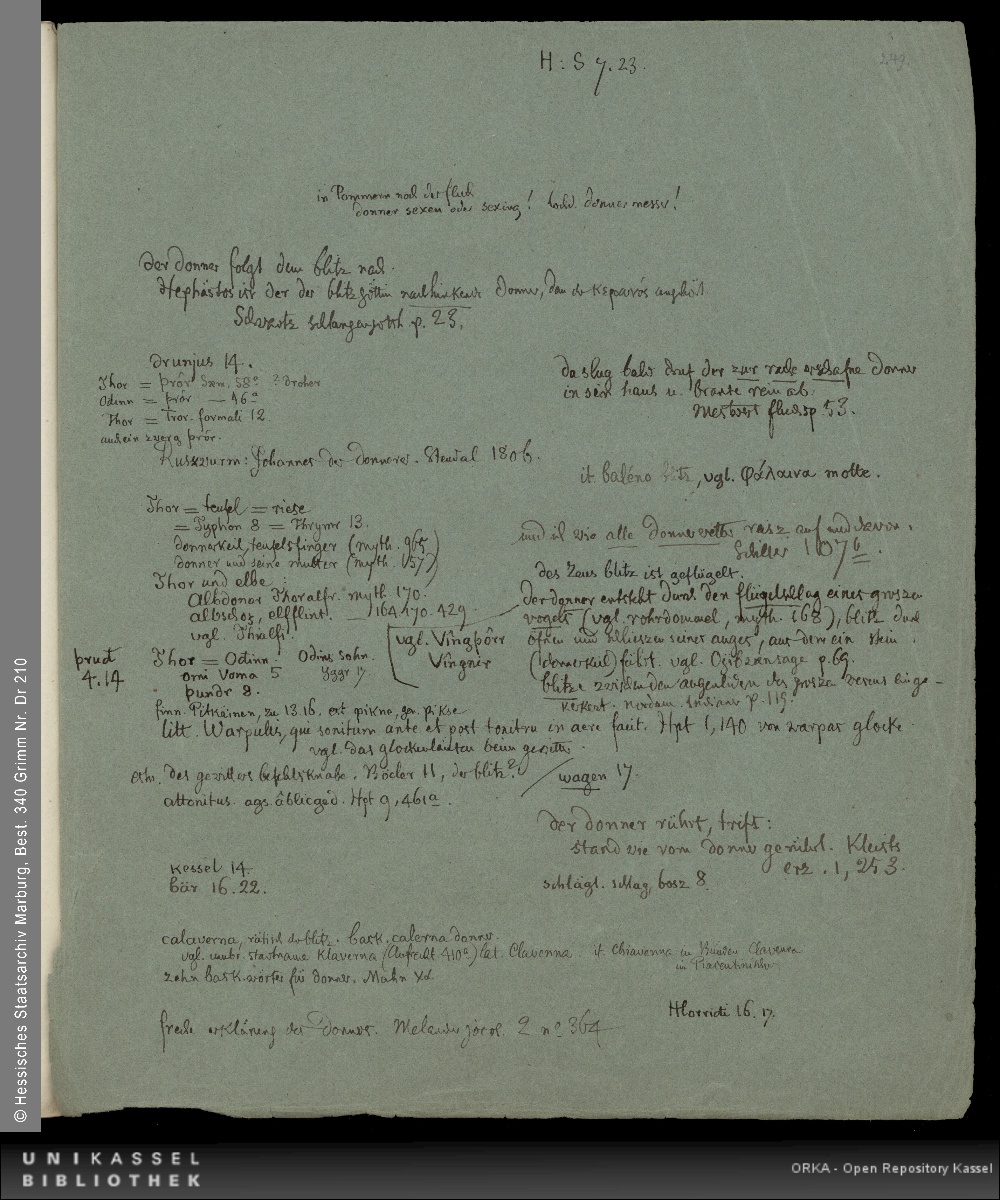 H: S 7. 23.
249.
in Pommern noch der fluch
donner sexen oder sexing! hochd. donner messer!
der donner folgt dem blitz nach.
Hephästos ist der der blitzgöttin nachhinkende Donner, dem der κεραυνός angehört.
Schwartz schlangengotth p. 23.
drunjus 14.
Thor = þrôr Sæm. 58ᵃ ? Droher
Odinn = þrór — 46ᵃ
Thor = Tror. formali 12
auch ein zwerg þrór.
Kuszwurm: Johannes der donnerer. Stendal 1806.
da slug bald druf der zur rache erschafne donner
in sein haus u. brante rein ab.
fluchsp. 53.
it. baléno blitz, vgl. φάλαινα motte.
Thor = teufel = riese
= Typhon 8 = Thrymr 13.
donnerkeil, teufelsfinger (myth. 965)
donner und seine mutter (myth. 157)
Thor und elbe:
Albdonar Thoralfr. myth. 170.
albschos, elfflint. 164. 170. 429.
vgl. Thialfi.
und ich wie alle donnerwetter rasz auf und davon.
Schiller 107b.
des Zeus blitz ist geflügelt.
der donner entsteht durch den flügelschlag eines groszen
vogels (vgl. rohrdommel, myth. 168), blitz durch
öfnen und schlieszen seiner augen, aus dem ein stein
(donnerkeil) fährt. vgl. p. 69.
blitze zwischen den augenliden des grosze vereins einge-
kerkert. nordam. indianer p. 119.
þrud
4. 14
Thor = Odinn. Odins sohn.
omi Voma 5 Yggr 17
þundr 8.
vgl. Vingþôrr
Vingnir
finn. Pitkäinen, zu 13. 16. est pikne, gen. pikse
litt. Warpulis, qui sonitum ante et post tonitru in aere facit. Hpt 1, 140 von warpas glocke
vgl. das glockenläuten beim gewitter.
estn. des gewitters befehlsknabe. Böcler 11, der blitz?
attonitus. ags. âblicged. Hpt 9, 461a.
wagen 17.
der donner rührt, trift:
stand wie vom donner gerührt. Kleists
erz. 1, 253.
schlägt. schlag, bosz 8.
kessel 14.
bär 16. 22.
calaverna, rätisch der blitz. bask. calerna donner.
vgl. umbr. stadtname Klaverna (Aufrecht 410ᵃ) lat. Clavenna. it. Chiavenna in Bünden Clavenna
im Tridentinischen
zehn bask. wörter für donner. Mahn XX
Hlorridi 16. 17.
freche erklärung des Donners. Melander jocos. 2 nº 364
© Hessisches Staatsarchiv Marburg, Best. 340 Grimm Nr. Dr 210
UNIKASSEL
BIBLIOTHEK
ORKA - Open Repository Kassel